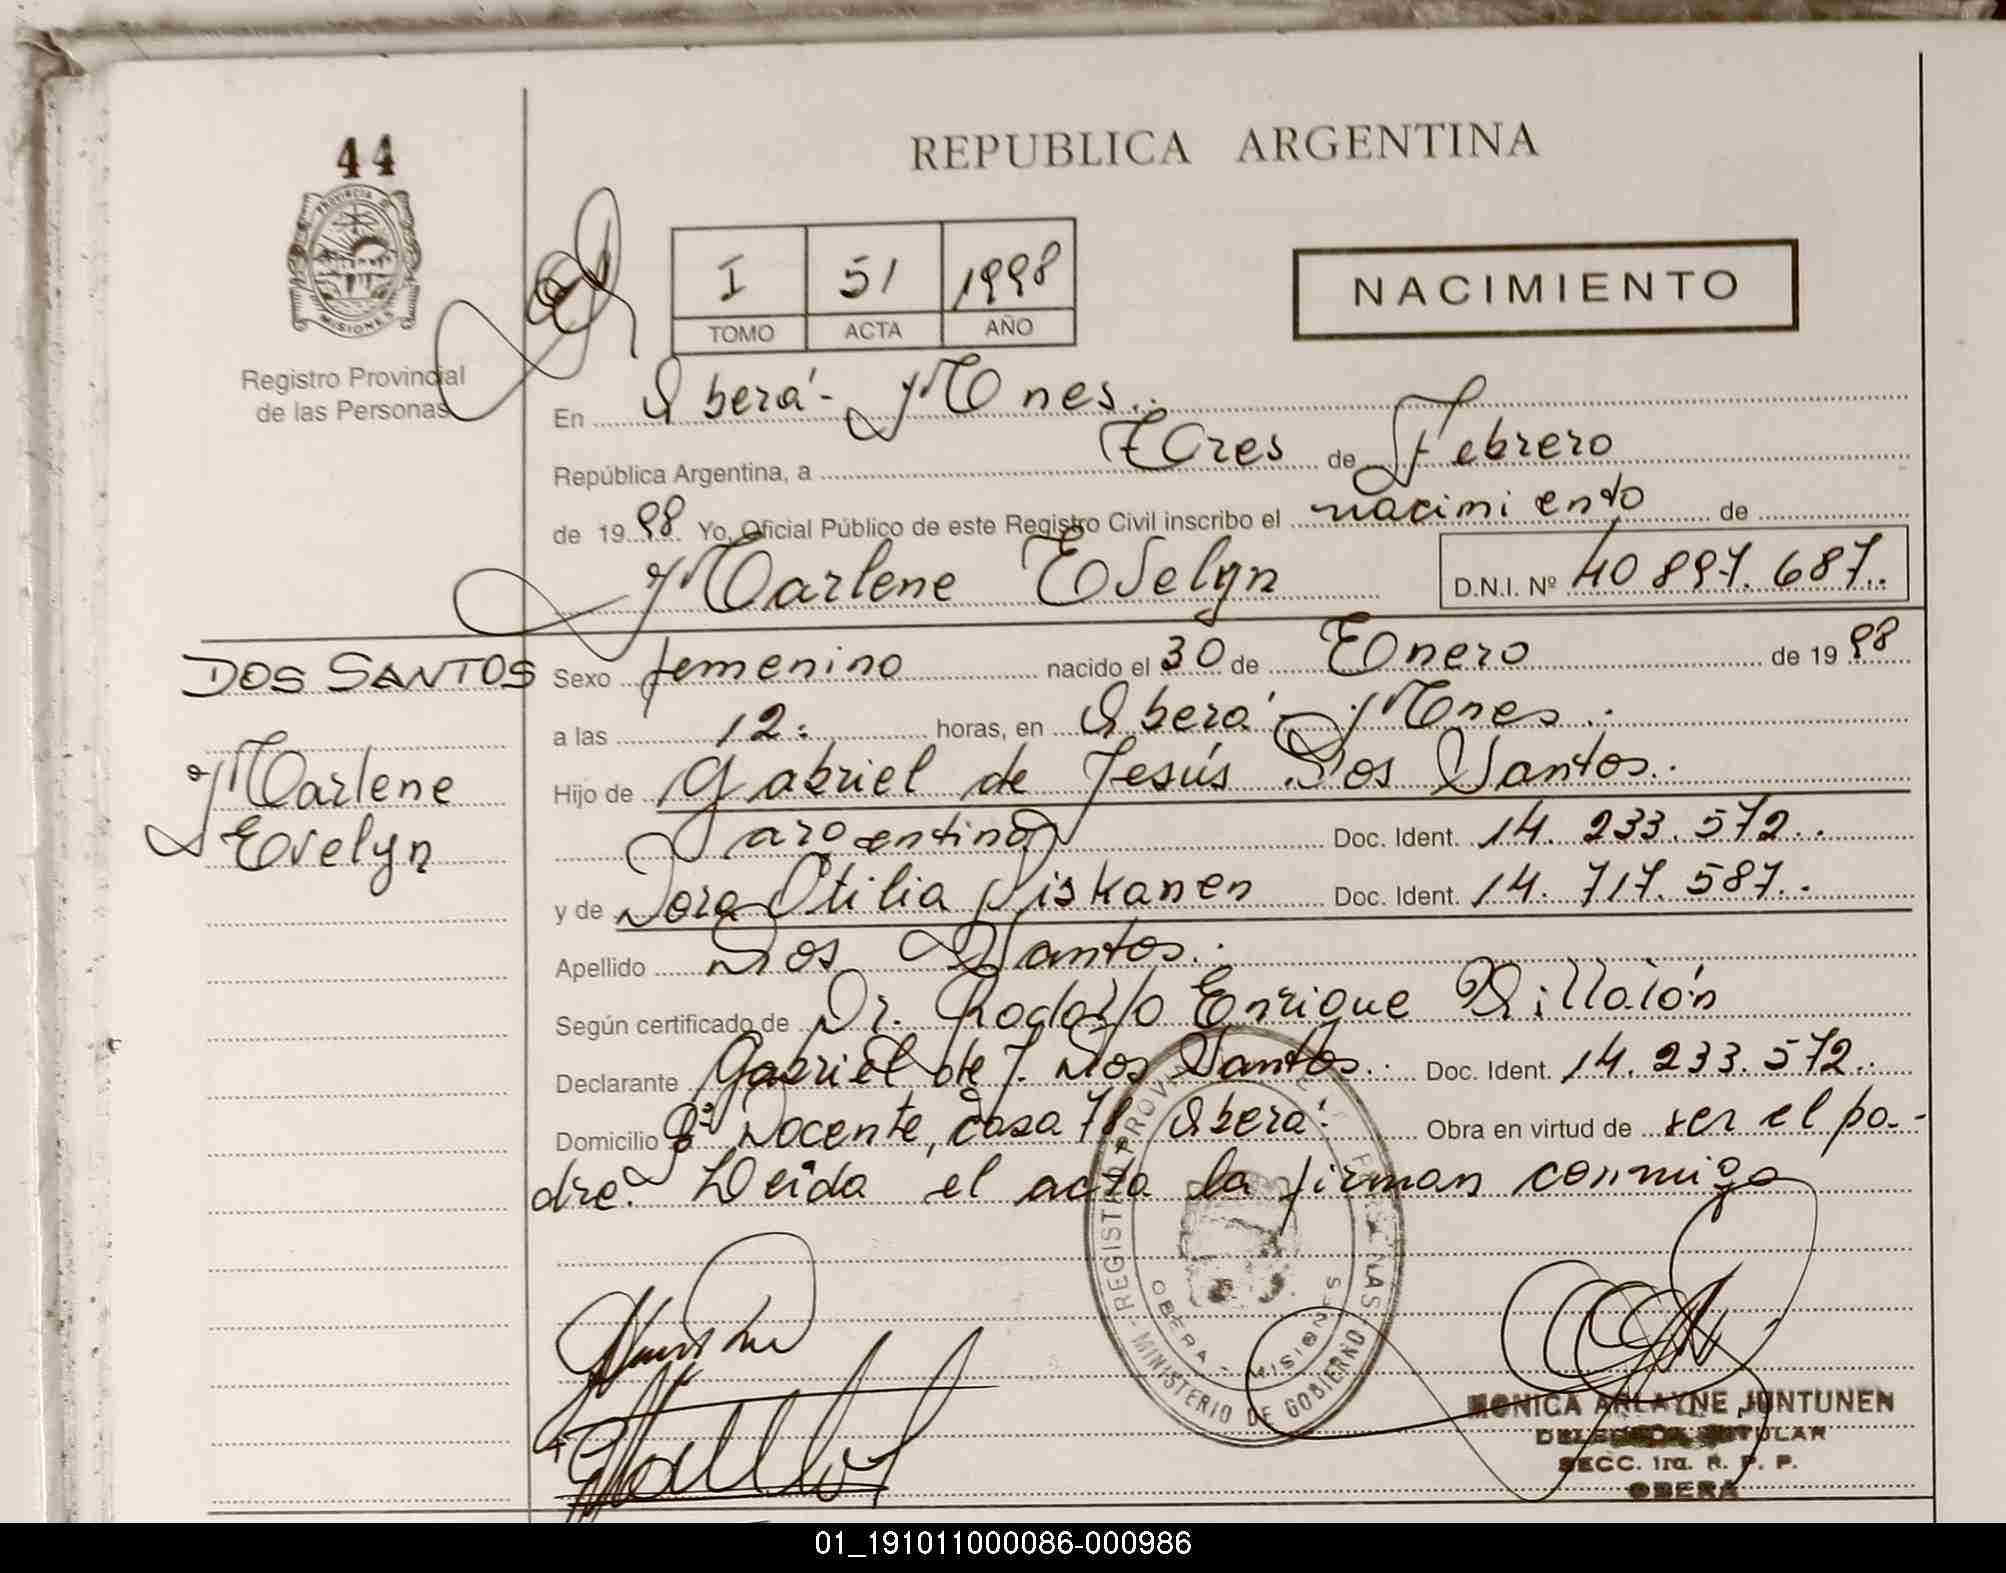 44
PROVINCIA DE
MISIONES
Registro Provincial
de las Personas
REPUBLICA ARGENTINA
I 51 1998
TOMO ACTA AÑO
NACIMIENTO
En Oberá - Mnes.
República Argentina, a Tres de Febrero
de 1998 Yo, Oficial Público de este Registro Civil inscribo el nacimiento de
Marlene Evelyn D.N.I. Nº 40 897. 687.
DOS SANTOS
Marlene
Evelyn
Sexo femenino nacido el 30 de Enero de 1998
a las 12: horas, en Oberá - Mnes.
Hijo de Gabriel de Jesús Dos Santos.
argentina Doc. Ident. 14. 233. 572.
y de Dora Otilia Piskanen Doc. Ident. 14. 717. 587.
Apellido Dos Santos.
Según certificado de Dr. Rodolfo Enrique Villalón
Declarante Gabriel de J. Dos Santos. Doc. Ident. 14. 233. 572.
Domicilio Bº Docente, casa 78 Oberá. Obra en virtud de ser el pa-
dre. Leída el acta la firman conmigo
REGISTRO PROV DE LAS PERSONAS
OBERA - MISIONES
MINISTERIO DE GOBIERNO
MONICA ARLAYNE JUNTUNEN
DELEGADA TITULAR
SECC. 1ra. R. P. P.
OBERA
01_191011000086-000986